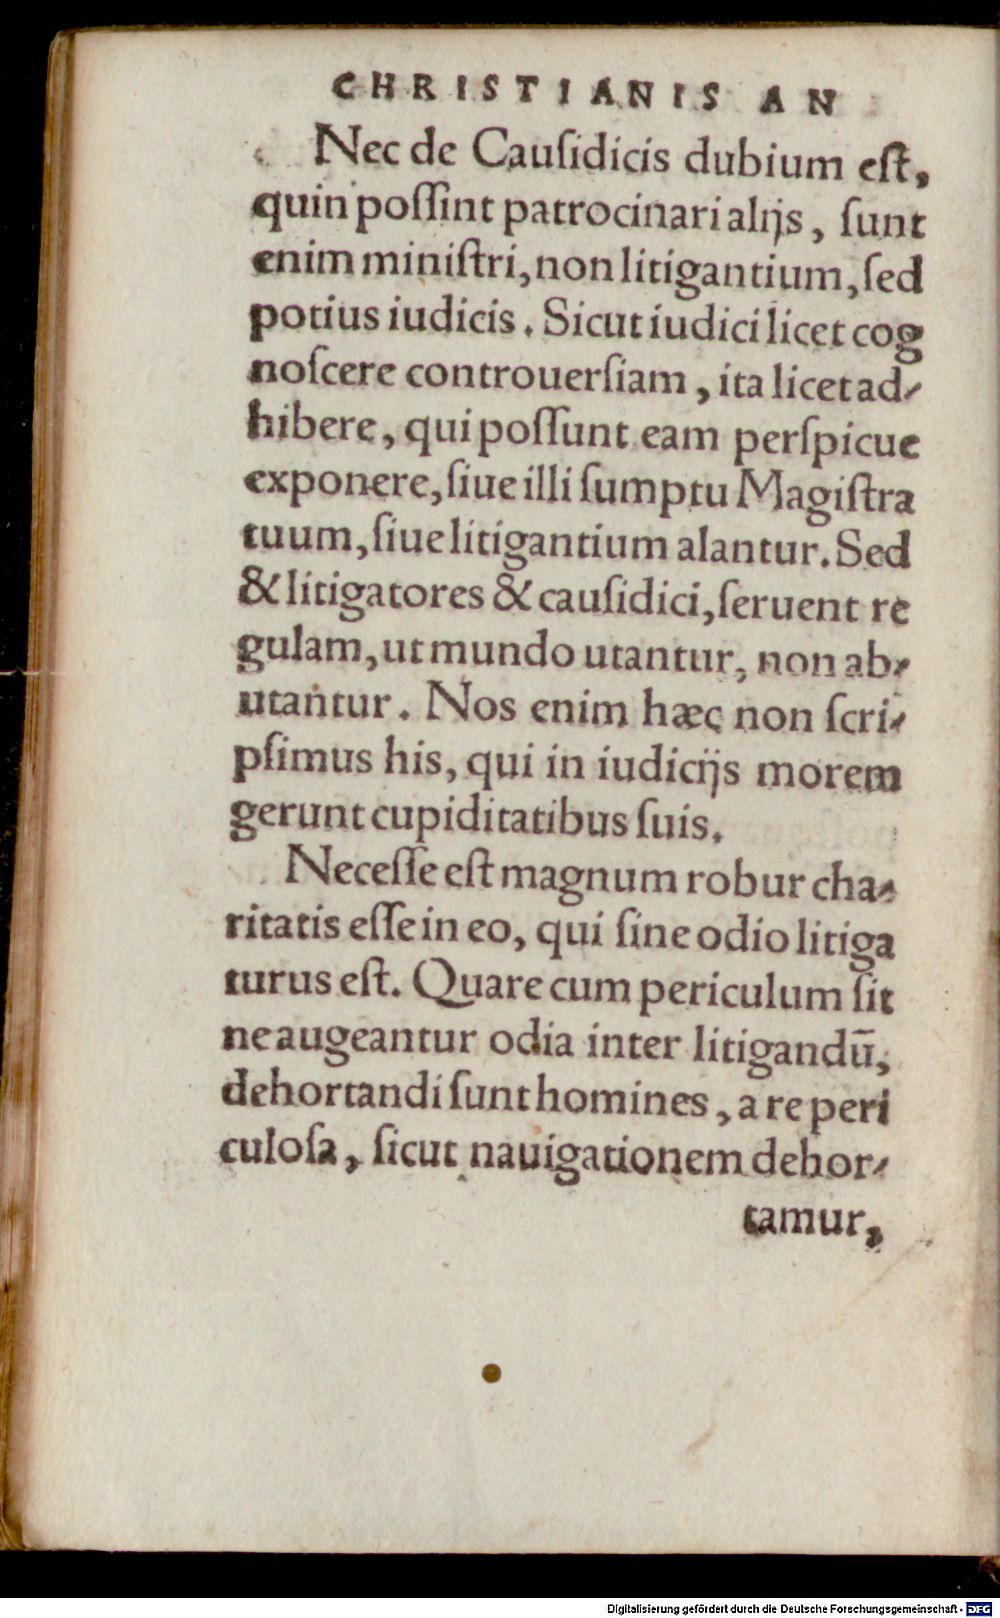 CHRISTIANIS AN
Nec de Cauſidicis dubium eſt,
quin poſſint patrocinari alijs, ſunt
enim miniſtri, non litigantium, ſed
potius iudicis. Sicut iudici licet cog
noſcere controuerſiam, ita licet ad-
hibere, qui poſſunt eam perſpicue
exponere, ſiue illi ſumptu Magiſtra
tuum, ſiue litigantium alantur. Sed
& litigatores & cauſidici, ſeruent re
gulam, ut mundo utantur, non ab-
utantur. Nos enim hæc non ſcri-
pſimus his, qui in iudicijs morem
gerunt cupiditatibus ſuis.
Neceſſe eſt magnum robur cha-
ritatis eſſe in eo, qui ſine odio litiga
turus eſt. Quare cum periculum ſit
ne augeantur odia inter litigandū,
dehortandi ſunt homines, a re peri
culoſa, ſicut nauigationem dehor-
tamur,
Digitalisierung gefördert durch die Deutsche Forschungsgemeinschaft - DFG